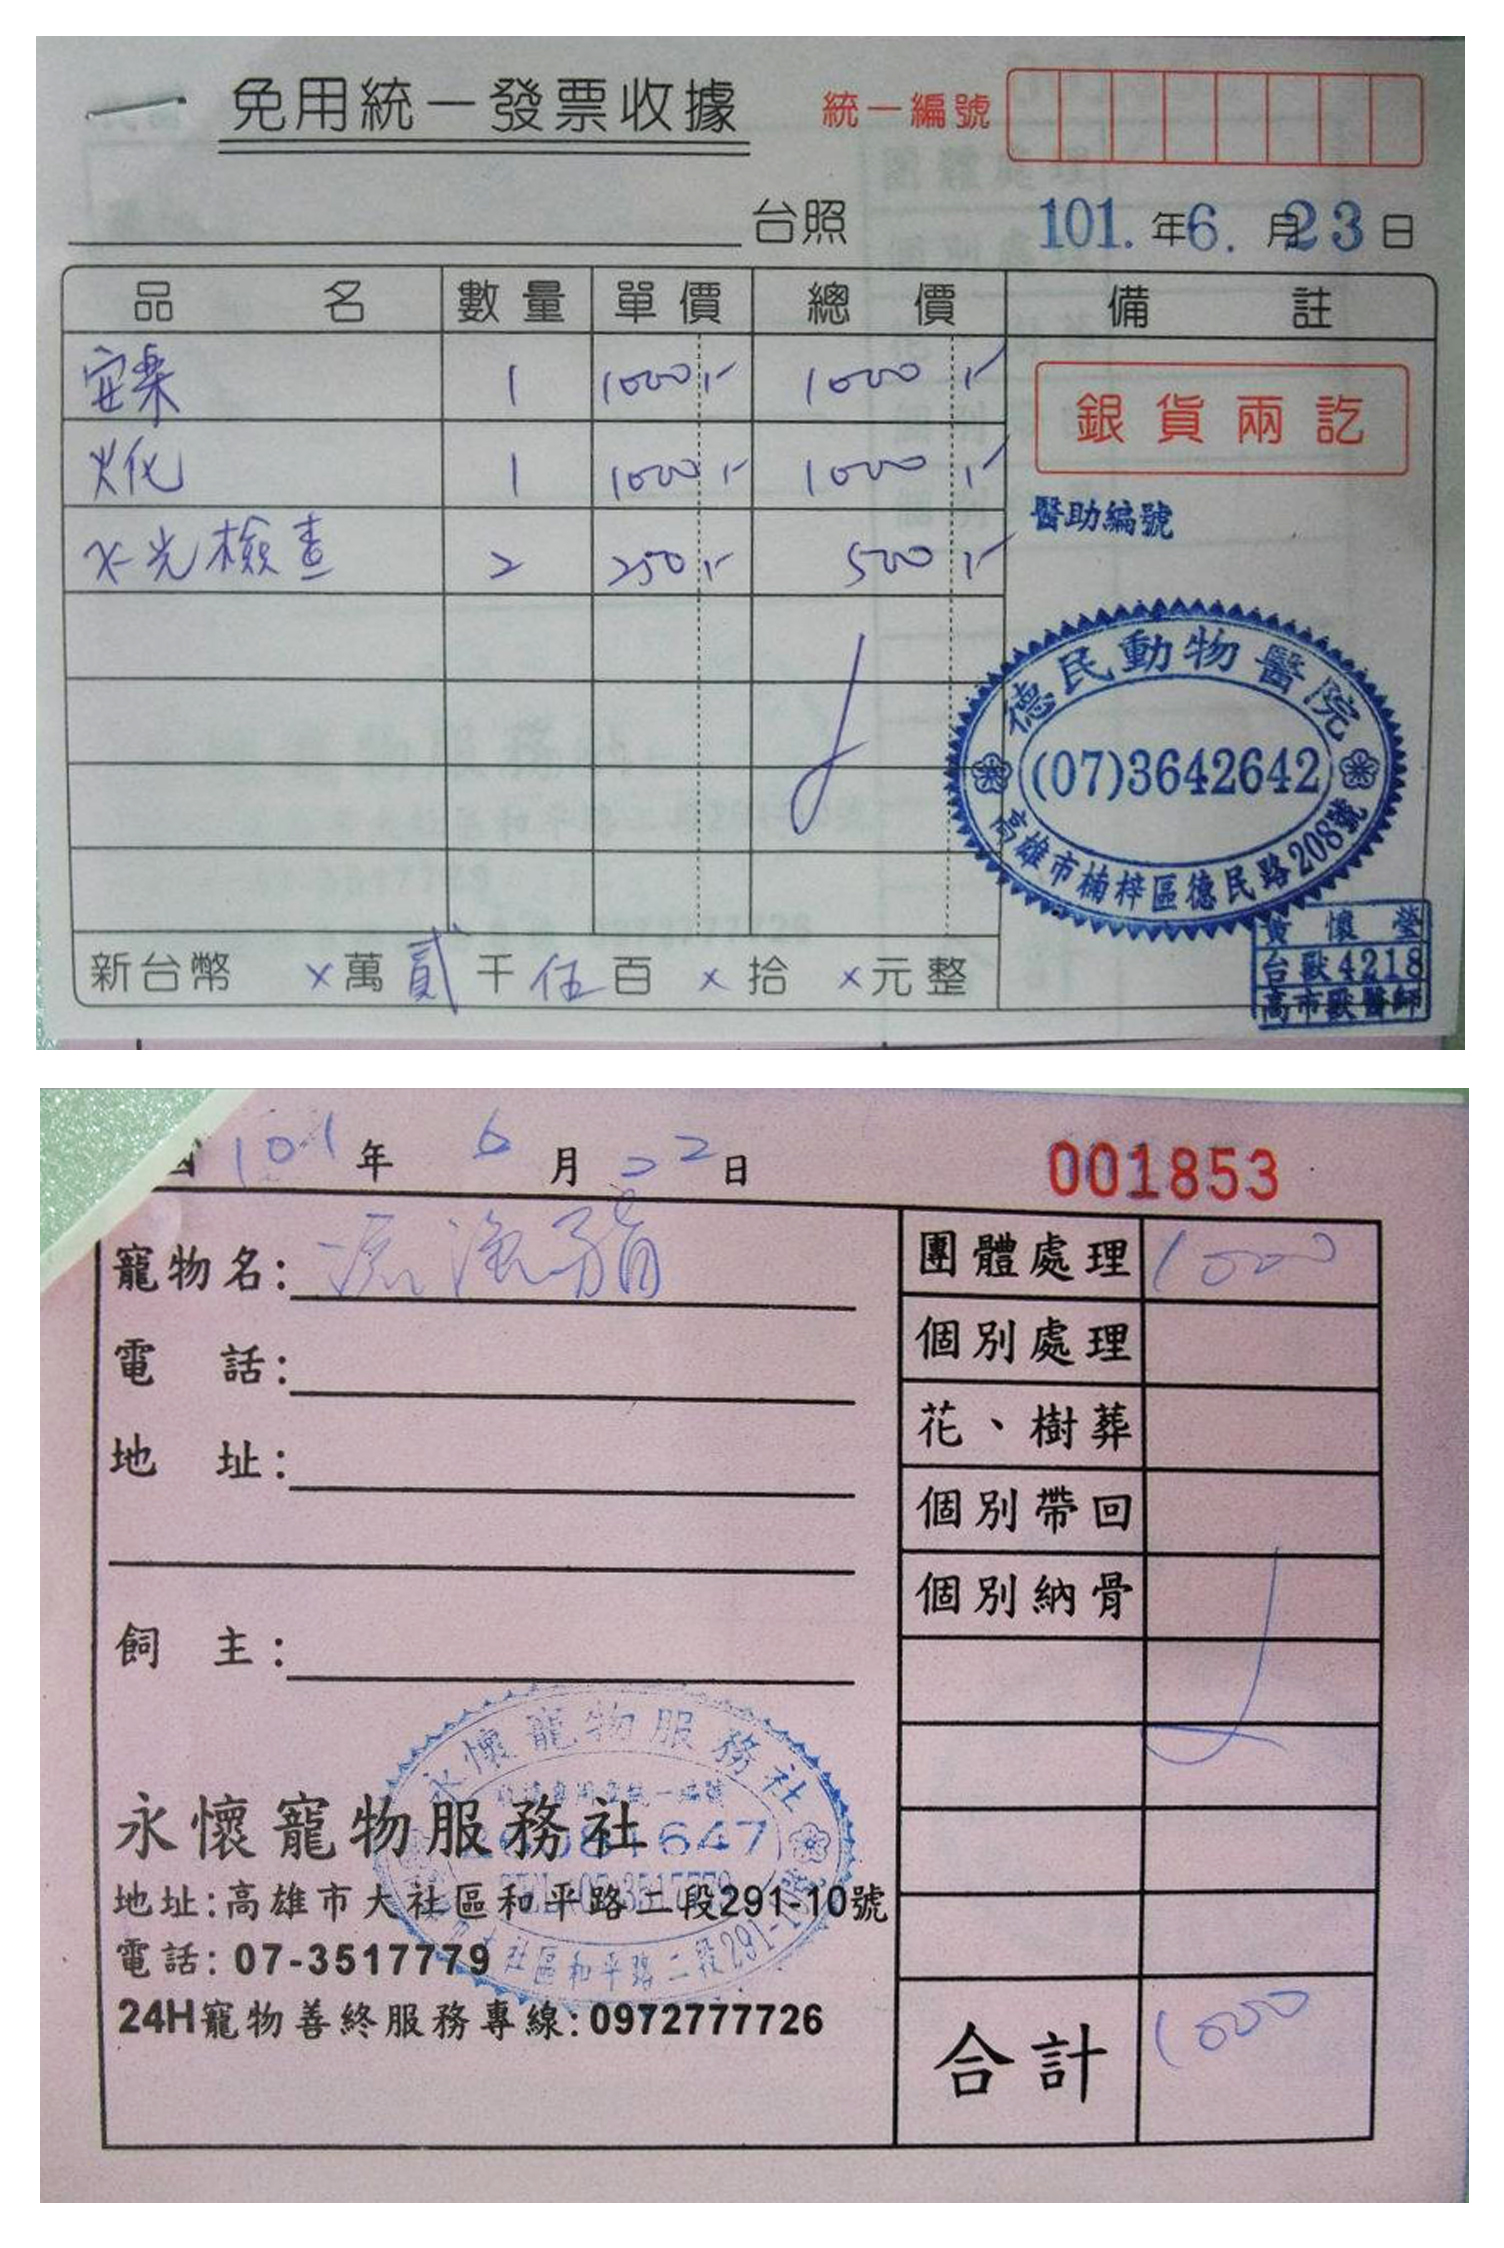 免用統一發票收據
統一編號
台照
101. 年 6. 月 23 日
品名 數量 單價 總價 備註
安樂 1 1000.- 1000.-
火化 1 1000.- 1000.-
X-光檢查 2 250.- 500.-
銀貨兩訖
醫助編號
德民動物醫院
(07)3642642
高雄市楠梓區德民路208號
黃懷瑩
台獸4218
高市獸醫師
新台幣 ×萬貳千伍百×拾×元整
101年6月22日
001853
寵物名:流浪貓
電話:
地址:
飼主:
團體處理 1000
個別處理
花、樹葬
個別帶回
個別納骨
合計 1000
永懷寵物服務社
永懷寵物服務社
地址:高雄市大社區和平路二段291-10號
電話: 07-3517779
24H寵物善終服務專線:0972777726